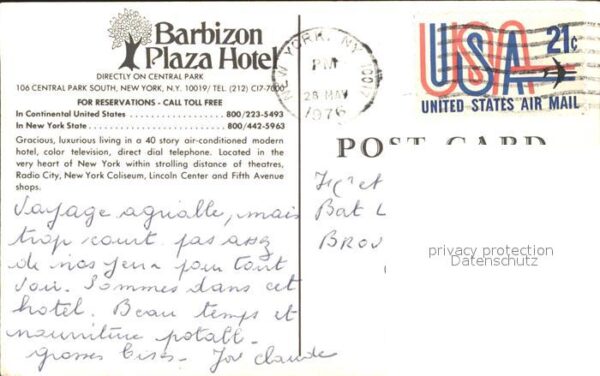 Barbizon
Plaza Hotel
DIRECTLY ON CENTRAL PARK
106 CENTRAL PARK SOUTH, NEW YORK, N.Y. 10019/ TEL. (212) CI7-7000
FOR RESERVATIONS - CALL TOLL FREE
In Continental United States ........................ 800/223-5493
In New York State .................................. 800/442-5963
Gracious, luxurious living in a 40 story air-conditioned modern
hotel, color television, direct dial telephone. Located in the
very heart of New York within strolling distance of theatres,
Radio City, New York Coliseum, Lincoln Center and Fifth Avenue
shops.
Voyage agréable, mais
trop court pas assez
de nos yeux pour tout
voir. Sommes dans cet
hotel. Beau temps et
nourriture potabl.
grosses bises. claude
NEW YORK, NY 10017
PM
28 MAY
1976
USA 21c
UNITED STATES AIR MAIL
POST CARD
Bat
BROU
privacy protection
Datenschutz